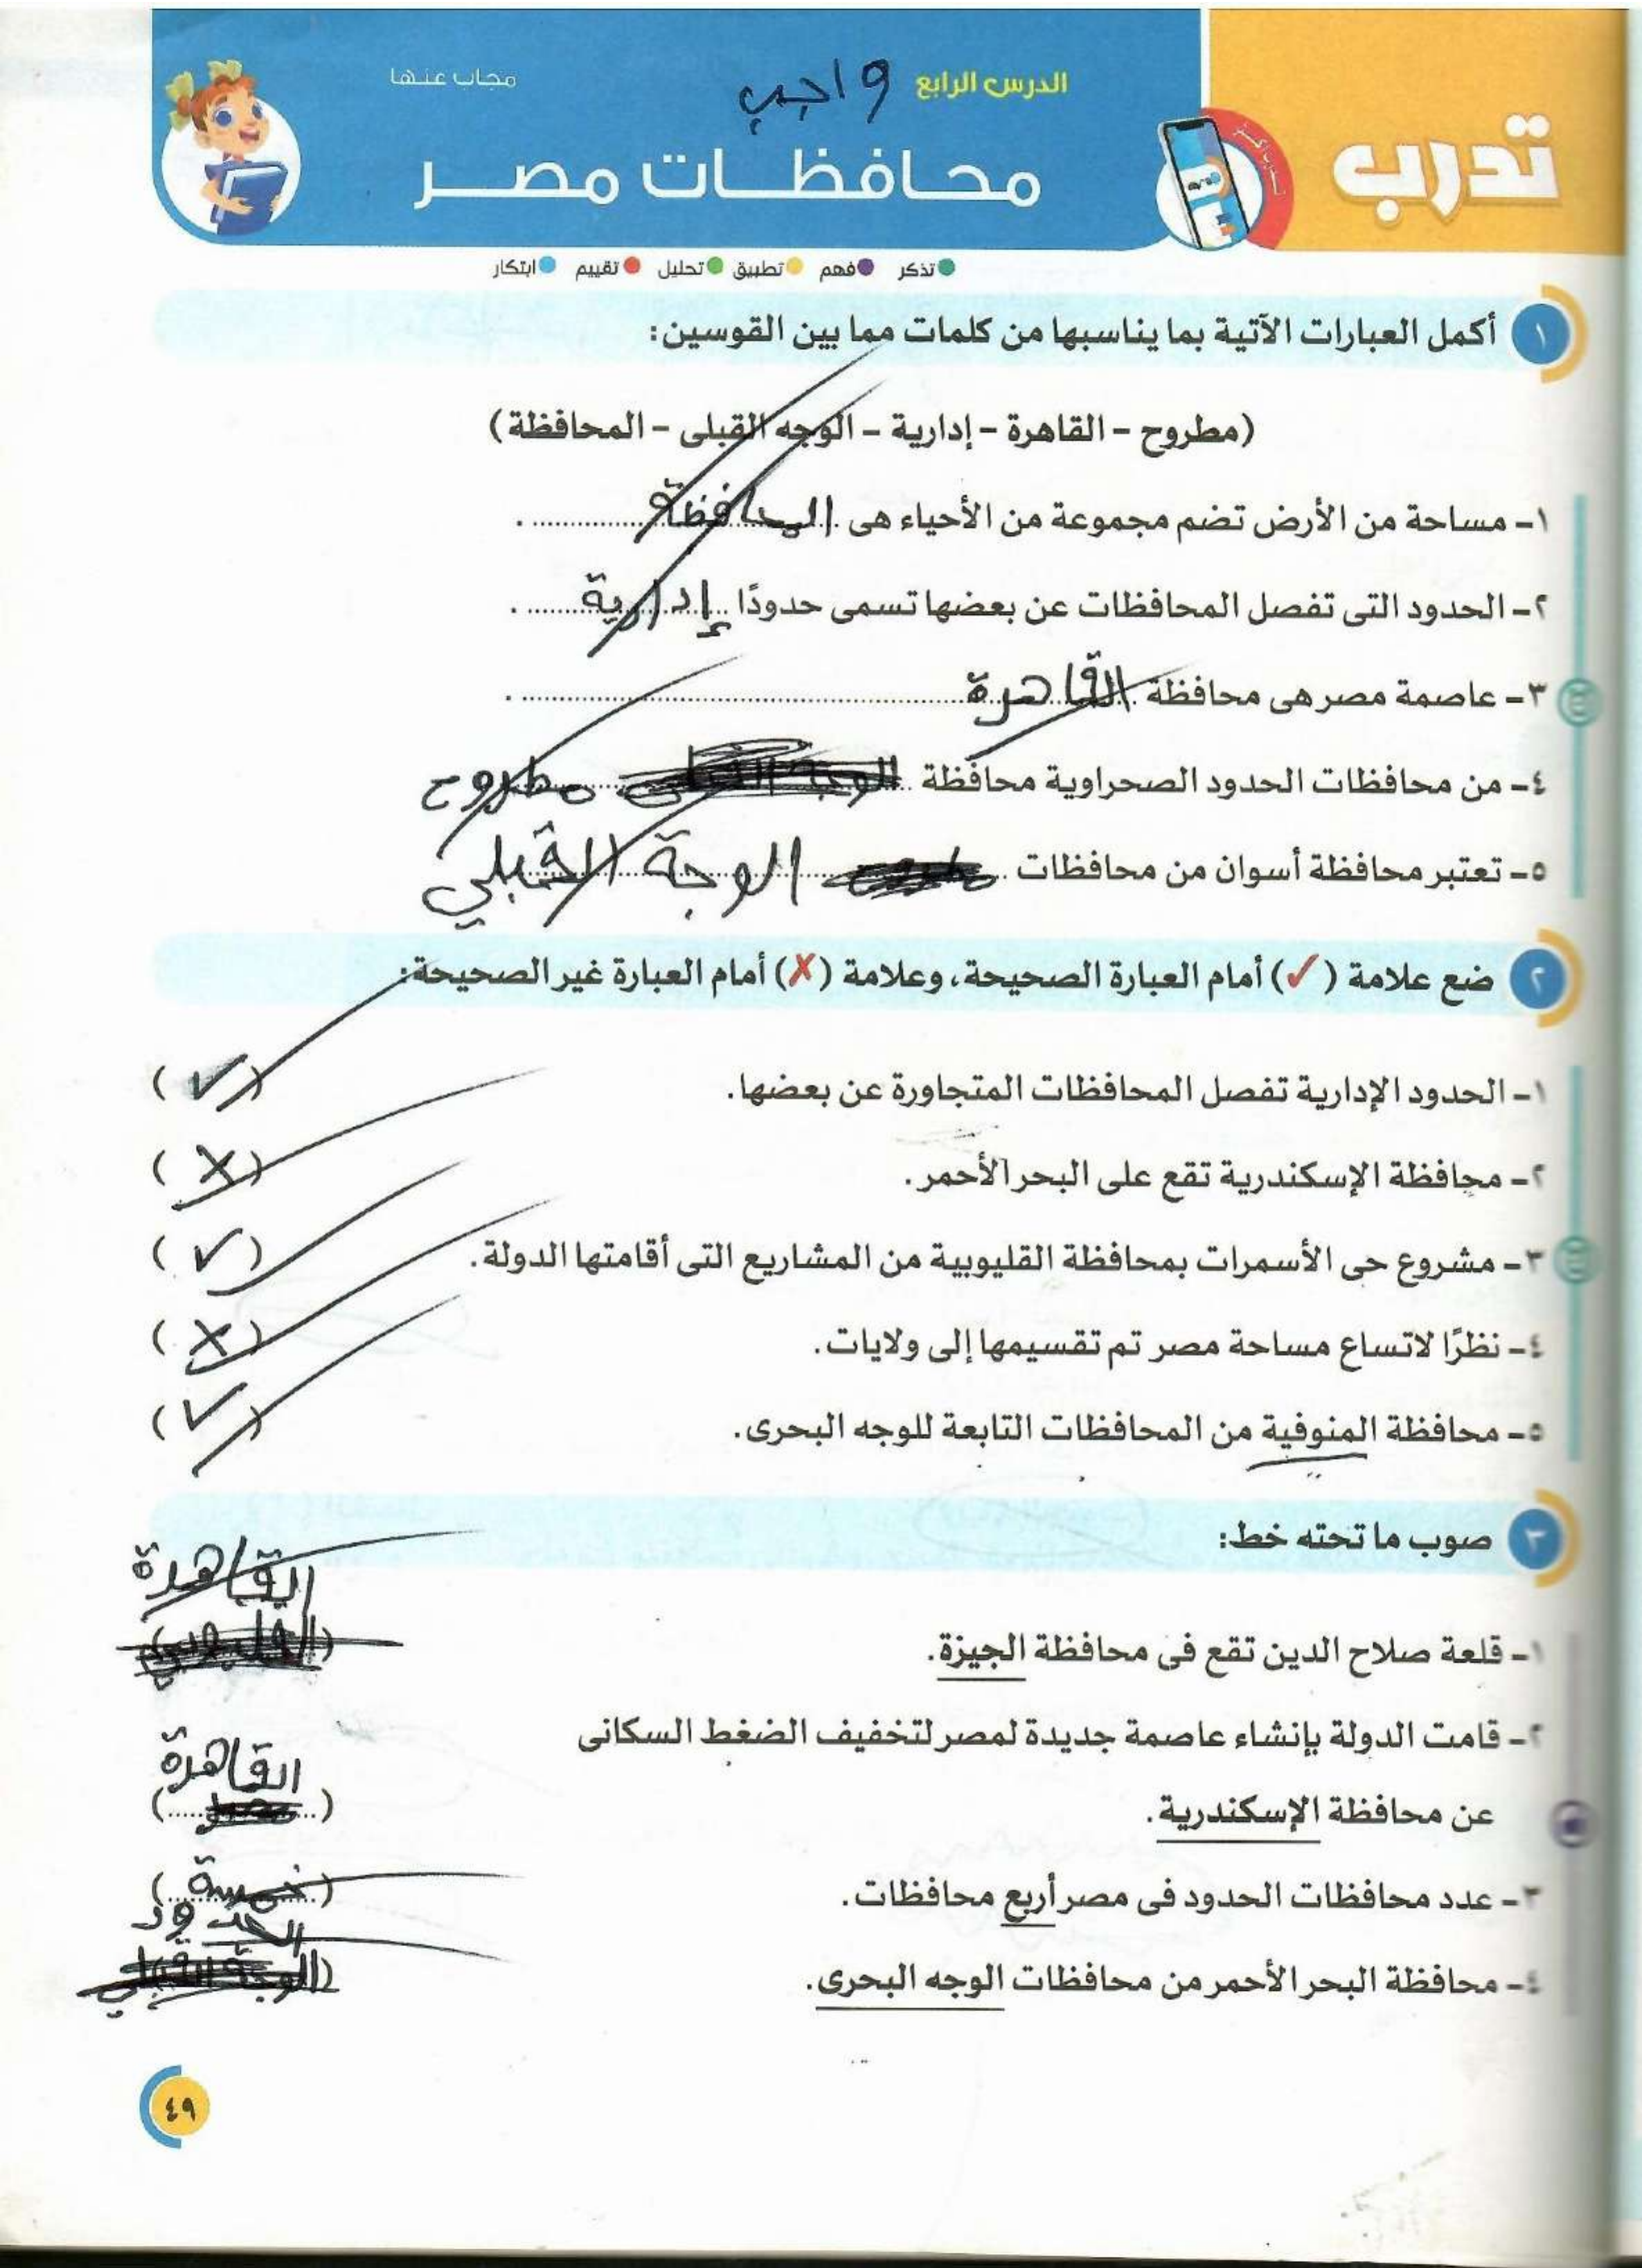 تدرب
الدرس الرابع
واجب
مجاب عنها
محافظات مصر
تذكر فهم تطبيق تحليل تقييم ابتكار
١ أكمل العبارات الآتية بما يناسبها من كلمات مما بين القوسين:
(مطروح - القاهرة - إدارية - الوجه القبلى - المحافظة)
١- مساحة من الأرض تضم مجموعة من الأحياء هى المحافظة .
٢- الحدود التى تفصل المحافظات عن بعضها تسمى حدودًا إدارية .
٣- عاصمة مصر هى محافظة القاهرة .
٤- من محافظات الحدود الصحراوية محافظة مطروح
٥- تعتبر محافظة أسوان من محافظات الوجة القبلي
٢ ضع علامة (✓) أمام العبارة الصحيحة، وعلامة (✗) أمام العبارة غير الصحيحة:
١- الحدود الإدارية تفصل المحافظات المتجاورة عن بعضها. (✓)
٢- محافظة الإسكندرية تقع على البحر الأحمر. (✗)
٣- مشروع حى الأسمرات بمحافظة القليوبية من المشاريع التى أقامتها الدولة. (✓)
٤- نظرًا لاتساع مساحة مصر تم تقسيمها إلى ولايات. (✗)
٥- محافظة المنوفية من المحافظات التابعة للوجه البحرى. (✓)
٣ صوب ما تحته خط:
القاهرة
١- قلعة صلاح الدين تقع فى محافظة الجيزة.
٢- قامت الدولة بإنشاء عاصمة جديدة لمصر لتخفيف الضغط السكانى
القاهرة
عن محافظة الإسكندرية. (
)
٣- عدد محافظات الحدود فى مصر أربع محافظات. (خمسة)
الحدود
٤- محافظة البحر الأحمر من محافظات الوجه البحرى.
٤٩